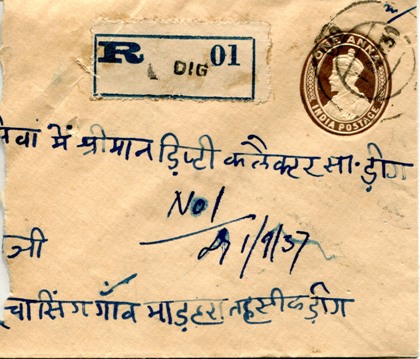 R DIG 01
ONE ANNA
INDIA POSTAGE
सेवा में श्रीमान डिप्टी कलैक्टर सा. ड़ीग
No 1
1/9/37
जी
चासिंग गाँव माड़हरा तहसील ड़ीग